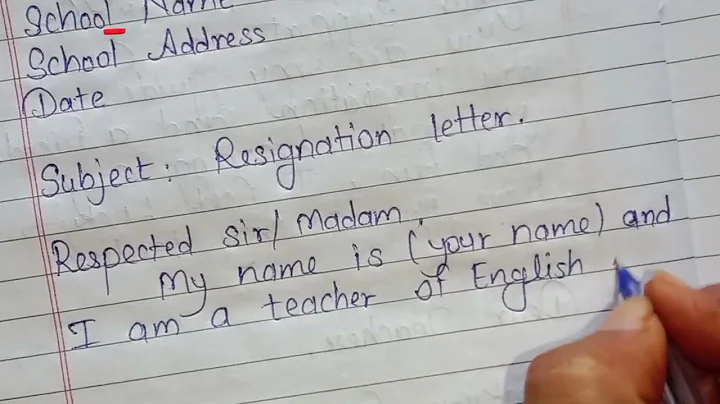 School Name
School Address
Date
Subject: Resignation letter.
Respected sir/Madam,
My name is (your name) and
I am a teacher of English